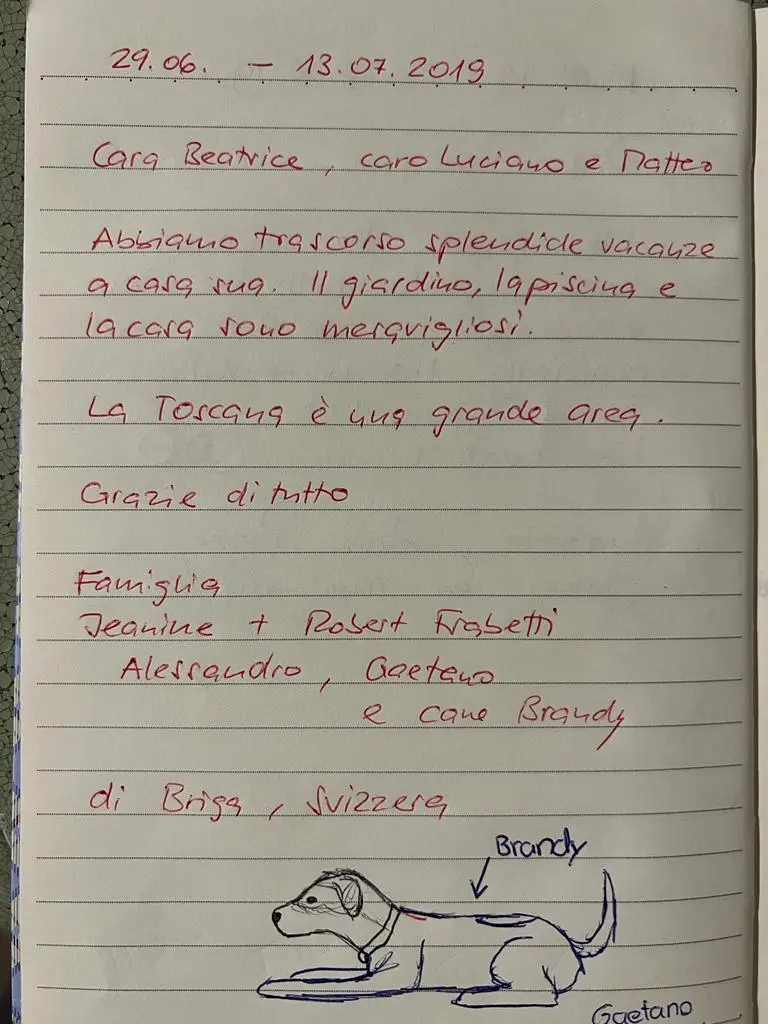 29.06. – 13.07.2019
Cara Beatrice, caro Luciano e Matteo
Abbiamo trascorso splendide vacanze
a casa sua. Il giardino, la piscina e
la casa sono meravigliosi.
La Toscana è una grande area.
Grazie di tutto
Famiglia
Jeanine + Robert Frabetti
Alessandro, Gaetano
e cane Brandy
di Briga, Svizzera
Brandy
Gaetano